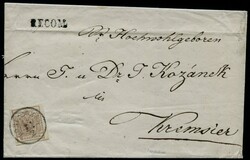 RECOM.
Sr Hochwohlgeboren
Herrn J. u Dr. J. Kozánek
in
Kremsier